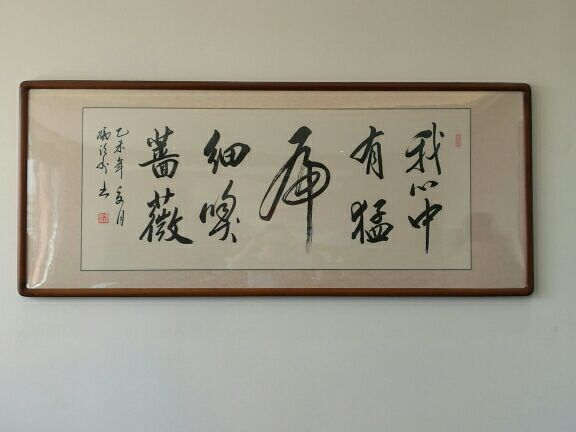 我心中
有猛
虎
細嗅
薔薇
乙未年夏月
书